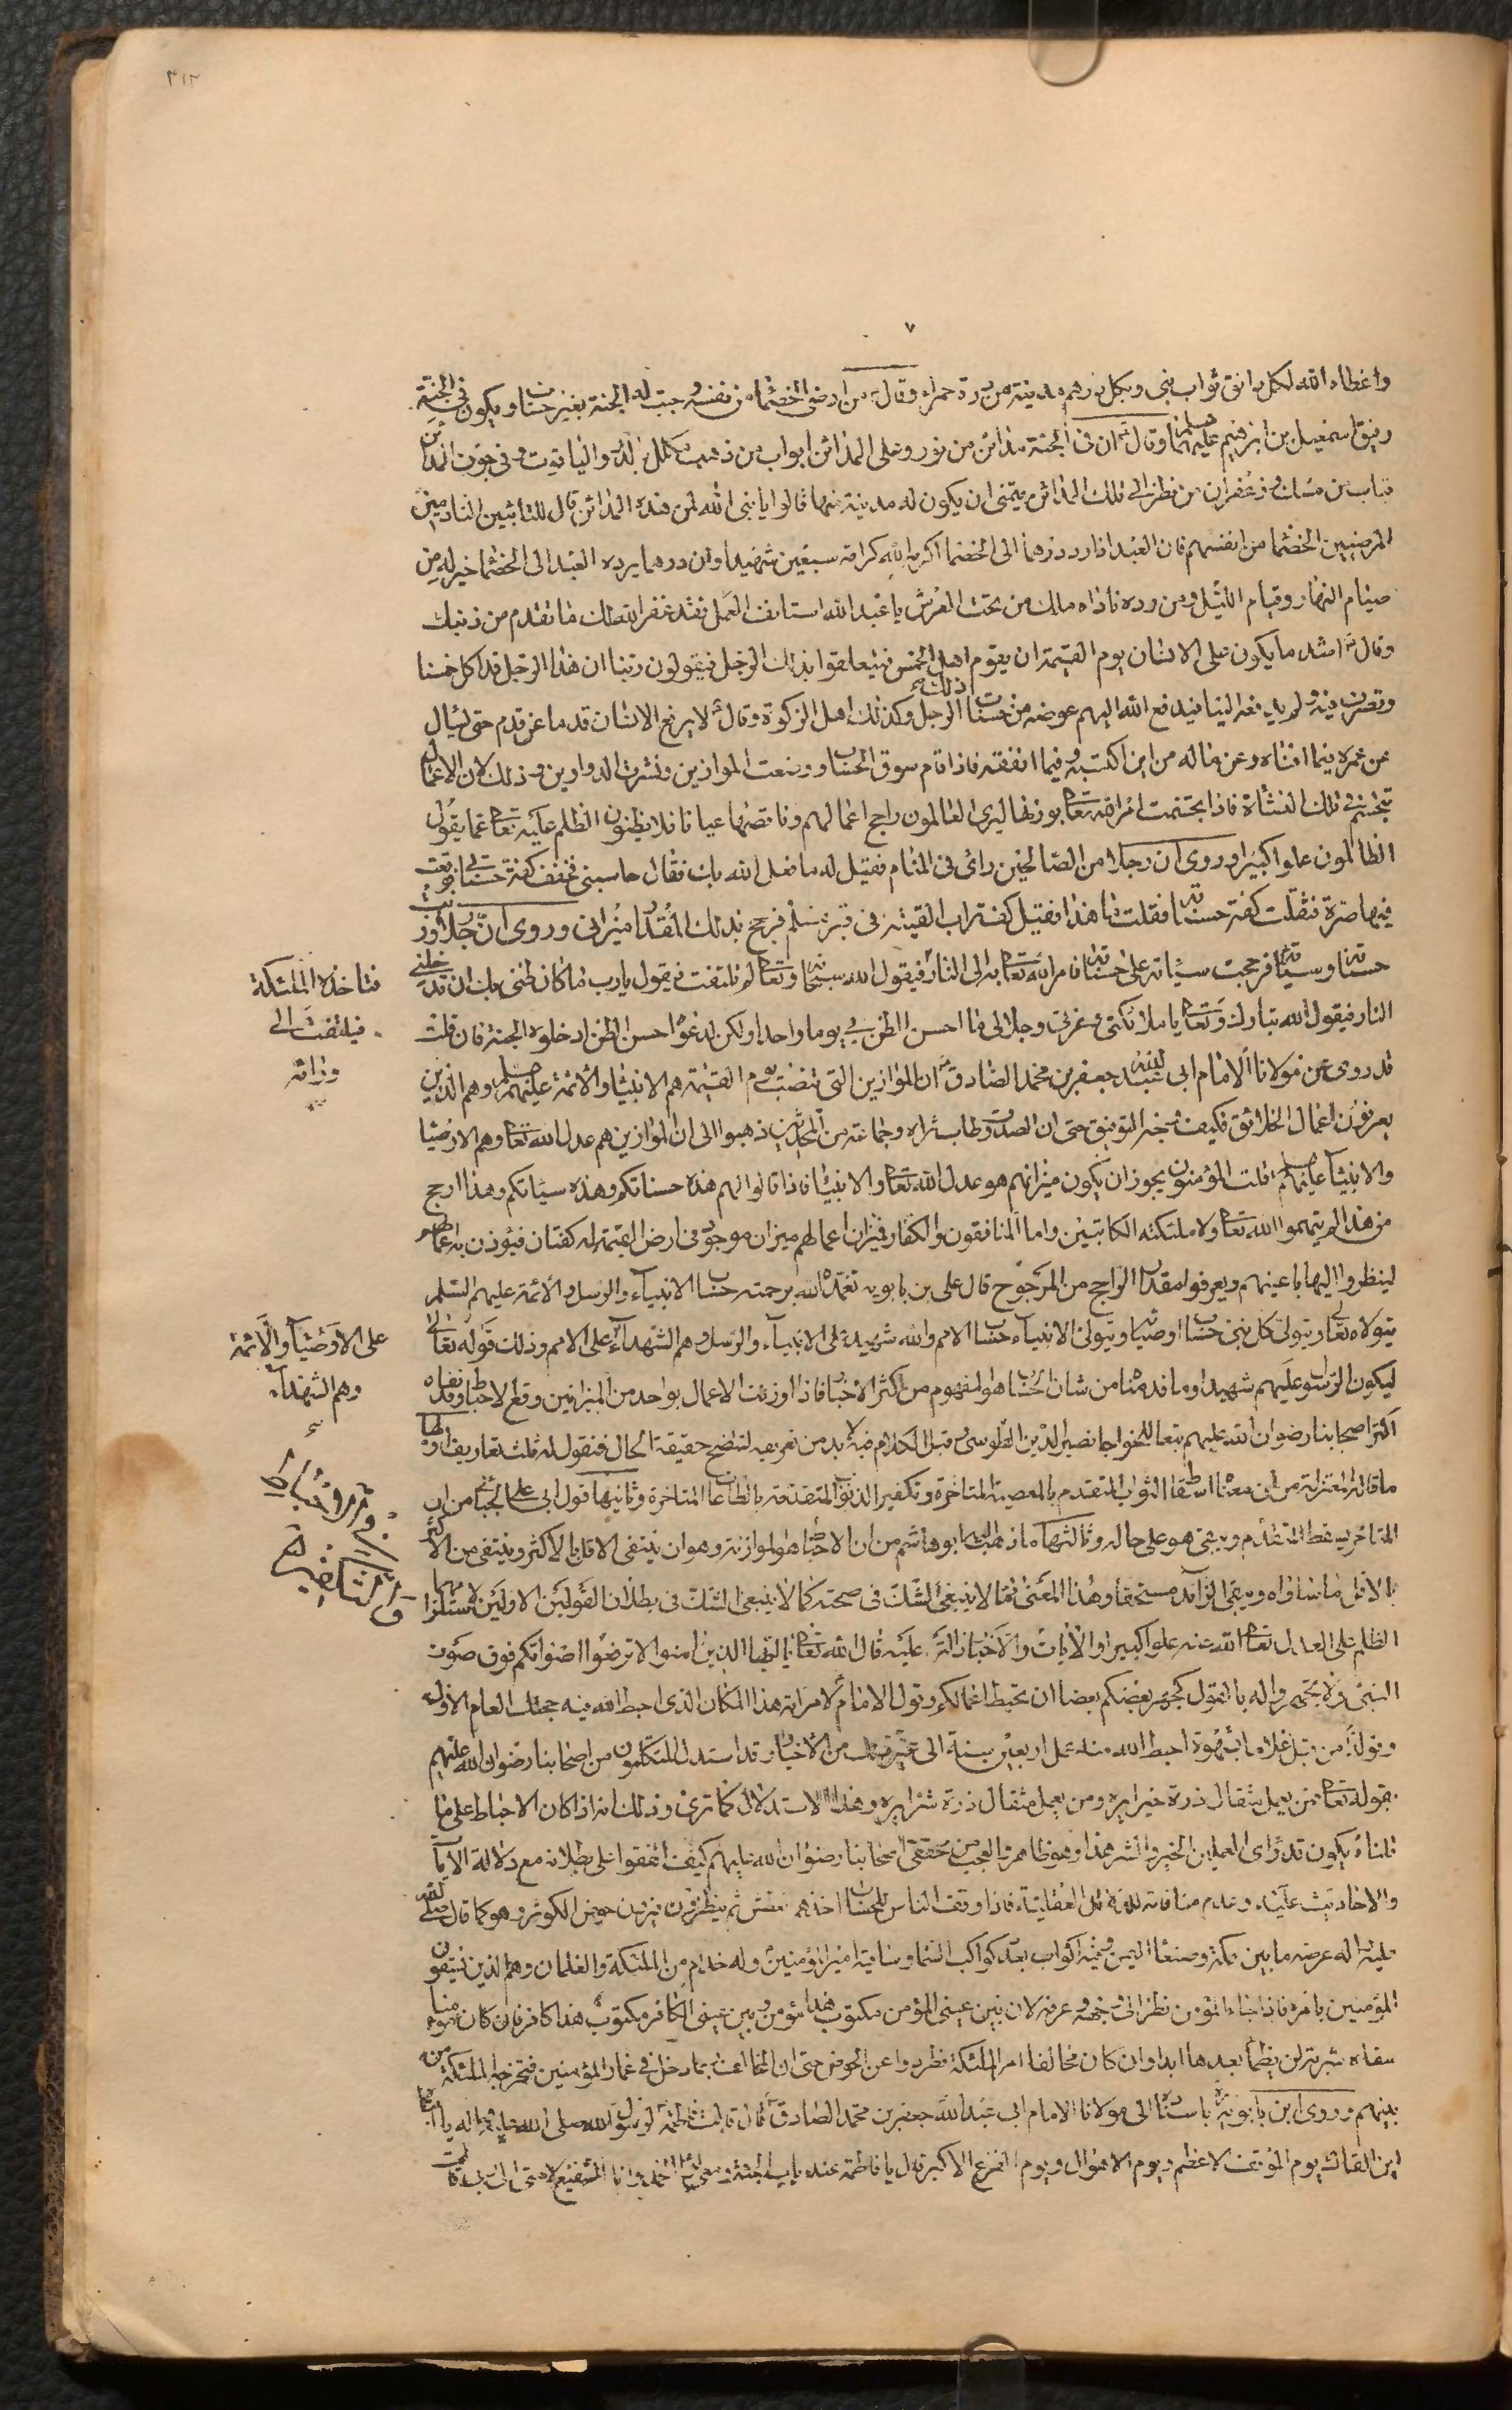 ٣١٣
٧
واعطاه الله لكل دانق ثواب نبي وبكل درهم مدينة من درة حمراء وقال من ارضى الخصماء من نفسه وجبت له الجنة بغير حساب ويكون في الجنة
رفيق اسمعيل بن ابرهيم عليهما السلم وقال ان في الجنة مدائن من نور وعلى المدائن ابواب من ذهب مكلل بالدر والياقوت وفي جوف المدائن
قباب من مسك وزعفران من نظر الى تلك المدائن يتمنى ان يكون له مدينة منها قالوا يا نبي الله لمن هذه المدائن قال للتائبين النادمين
المرضيين الخصماء من انفسهم فان العبد اذا رد درهما الى الخصماء اكرمه الله كرامة سبعين شهيدا وان درهما يرده العبد الى الخصماء خير له من
صيام النهار وقيام الليل ومن رده ناداه ملك من تحت العرش يا عبد الله استانف العمل فقد غفر الله لك ما تقدم من ذنبك
وقال اشد ما يكون على الانسان يوم القيمة ان يقوم اهل الخمس فيتعلقوا بذلك الرجل فيقولون ربنا ان هذا الرجل قد اكل خمسنا
وتصرف فيه ولم يدفعه الينا فيدفع الله اليهم عوضه من حسنات ذلك الرجل وكذلك اهل الزكوة وقال لا يرفع الانسان قدما عن قدم حتى يسال
عن عمره فيما افناه وعن ماله من اين اكتسبه وفيما انفقه فاذا قام سوق الحساب ووضعت الموازين ونشرت الدواوين وذلك لان الاعمال
تتجسم في تلك النشأة فاذا تجسمت امر الله تعالى بوزنها ليرى العالمون راجح اعمالهم وناقصها عيانا فلا يظنون الظلم عليه تعالى عما يقول
الظالمون علوا كبيرا وروى ان رجلا من الصالحين رأى في المنام فقيل له ما فعل الله بك فقال حاسبني فخفف كفة حسناتي فوقعت
فيها صرة فثقلت كفة حسناتي فقلت ما هذا فقيل كف تراب القيته في قبر مسلم فرجح بذلك المقدار ميزاني وروى ان رجلا وزنت
حسناته وسيئاته فرجحت سيئاته على حسناته فامر الله تعالى به الى النار فيقول الله سبحانه وتعالى لم تلتفت فيقول يا رب ما كان ظني بك ان تدخلني
النار فيقول الله تبارك وتعالى يا ملائكتي وعزتي وجلالي ما احسن الظن بي يوما واحدا ولكن لدعواه حسن الظن ادخلوه الجنة فان قلت
قد روى عن مولانا الامام ابي عبد الله جعفر بن محمد الصادق ان الموازين التي تنصب يوم القيمة هم الانبياء والائمة عليهم السلم وهم الذين
يعرفون اعمال الخلائق فكيف وجه التوفيق حتى ان الصدوق طاب ثراه وجماعة من المحدثين ذهبوا الى ان الموازين هم عدل الله تعالى وهم الاوصياء
والانبياء عليهم السلم قلت المؤمنون يجوز ان يكون ميزانهم هو عدل الله تعالى والانبياء فاذا قالوا لهم هذه حسناتكم وهذه سيئاتكم وهذا ارجح
من هذا لم يتهموا الله تعالى ولا ملئكته الكاتبين واما المنافقون والكفار فيزان اعمالهم ميزان موجود في ارض القيمة له كفتان فيوزن به اعمالهم
لينظروا اليها باعينهم ويعرفوا مقدار الراجح من المرجوح قال علي بن بابويه تغمده الله برحمته حساب الانبياء والرسل والائمة عليهم السلم
يتولاه تعالى ويتولى كل نبي حساب اوصيائه ويتولى الانبياء حساب الامم والله شهيد على الانبياء والرسل وهم الشهداء على الامم وذلك قوله تعالى
ليكون الرسول عليهم شهيدا وما قدمناه من شان الحساب هو المفهوم من اكثر الاخبار فاذا وزنت الاعمال بواحد من الميزانين وقع الاحباط وقد نفاه
اكثر اصحابنا رضوان الله عليهم تبعا للخواجا نصير الدين الطوسي وقبل الكلام فيه لا بد من تعريفه لتتضح حقيقة الحال فنقول له ثلث تعاريف اولها
ما قاله المعتزلة من ان معناه اسقاط الثواب المتقدم بالمعصية المتاخرة وتكفير الذنوب المتقدمة بالطاعات المتاخرة وثانيها قول ابي علي الجبائي من ان
المتاخر يسقط المتقدم ويبقى هو على حاله وثالثها ما ذهب اليه ابو هاشم من ان الاحباط هو الموازنة وهو ان ينتفي الاقل بالاكثر وينتفي من الاكثر
بالاقل ما ساواه ويبقى الزائد مستحقا وهذا المعنى مما لا ينبغي الشك في صحته كما لا ينبغي الشك في بطلان القولين الاولين لاستلزامهما
الظلم على العادل تعالى الله عنه علوا كبيرا والايات والاخبار دالة عليه قال الله تعالى يا ايها الذين امنوا لا ترفعوا اصواتكم فوق صوت
النبي ولا تجهروا له بالقول كجهر بعضكم بعضا ان تحبط اعمالكم وقول الامام لامراته هذا المكان الذي احبط الله فيه حجك العام الاول
وقوله من قبل غلاما بشهوة احبط الله منه عمل اربعين سنة الى غير ذلك من الاخبار وقد استدل المتكلمون من اصحابنا رضوان الله عليهم
بقوله تعالى فمن يعمل مثقال ذرة خيرا يره ومن يعمل مثقال ذرة شرا يره وهذا الاستدلال كما ترى وذلك انه اذا كان الاحباط على ما
قلناه يكون قد رأى العملين الخير والشر هذا وهو ظاهر والعجب من محققي اصحابنا رضوان الله عليهم كيف اتفقوا على بطلانه مع دلالة الايات
والاحاديث عليه وعدم منافاته للدلائل العقلية فاذا وقف الناس للحساب اخذهم العطش ثم ينظرون فيرون حوض الكوثر وهو كما قال صلى الله
عليه واله عرضه ما بين مكة وصنعاء اليمن وفيه اكواب بعدد كواكب السماء وساقيه امير المؤمنين وله خدام من الملئكة والغلمان وهم الذين يسقون
المؤمنين بامره فاذا جاء المؤمن نظر الى وجهه وعرفه لان بين عيني المؤمن مكتوب هذا مؤمن وبين عيني الكافر مكتوب هذا كافر فان كان مؤمنا
سقاه شربة لن يظمأ بعدها ابدا وان كان مخالفا امر الملئكة فطردوا عن الحوض حتى ان المخالف ربما دخل في غمار المؤمنين فتخرجه الملئكة من
بينهم وروى ابن بابويه باسناده الى مولانا الامام ابي عبد الله جعفر بن محمد الصادق قال قالت فاطمة لرسول الله صلى الله عليه واله يا ابتاه
اين القاك يوم الموقف الاعظم ويوم الاهوال ويوم الفزع الاكبر قال يا فاطمة عند باب الجنة ومعي لواء الحمد وانا الشفيع لامتي الى ربي قالت
فتاخذه الملئكة
فيلتفت الى
ورائه
على الاوصياء والائمة
وهم الشهداء
في الاحباط
والتكفير